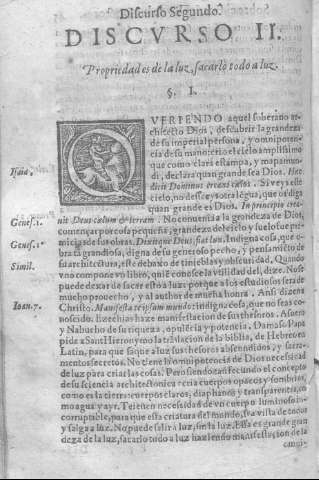 Discurso Segundo.
DISCVRSO II.
Propriedades de la luz, sacarlo todo a luz.
§. I.
QVERIENDO aquel soberano ar-
chitecto Dios, descubrir la grandeza
de su imperial persona, y omnipoten-
cia de su mano: crio el cielo amplissimo
que como clara estampa, y mapamun-
di, declara quan grande sea Dios. Hæc
Isaiæ. dicit Dominus creans cælos. Si veys este
cielo, no dessee y otra légua, que os diga
quan grande es Dios. In principio crea-
Genes.1. uit Deus cælum & terram. No conuenia a la grandeza de Dios,
començar por cosa pequeña, grandeza del cielo y suelo fue pri-
Genes.1. micias de sus obras. Dixitque Deus, fiat lux. Indigna cosa, que o-
bra tā grandiosa, digna de su generoso pecho, y pensamiēto de
Simil. su architectura, esté debaxo de tinieblas y obscuridad. Quando
vno compone vn libro, qui é conosce la vtilidad del, dize. No se
puede dexar de sacar esto a luz: porque a los estudiosos sera de
mucho prouecho, y al author de mucha honra. Ansi dizen a
Ioan.7. Christo. Manifesta te ipsum mundo: indigna cosa, que no seas co-
noscido. Ezechias haze manifestacion de sus thesoros. Assuero
y Nabucho de su riqueza, opulēcia y potencia. Damaso Papa
pide a Sant Hieronymo la traslacion de la biblia, de Hebreo en
Latin, para que saque a luz thesoros ascondidos, y sacra-
mentos secretos. No tiene la omnipotencia de Dios necessidad
de luz para criar las cosas. Pero siendo tan fecundo el concepto
de su sciencia architectonica, cria cuerpos opacos y sombrios,
como es la tierra: cuerpos claros, diaphanos y transparentes, co-
mo agua y ayre. Tienen necessidad de vn cuerpo luminoso in-
corruptable, para que esta criatura del mundo, sea vista de todos
y salga a luz. No puede salir a luz, sin la luz. Essa es grande gran
deza de la luz, sacarlo todo a luz haziendo manifestacion de la